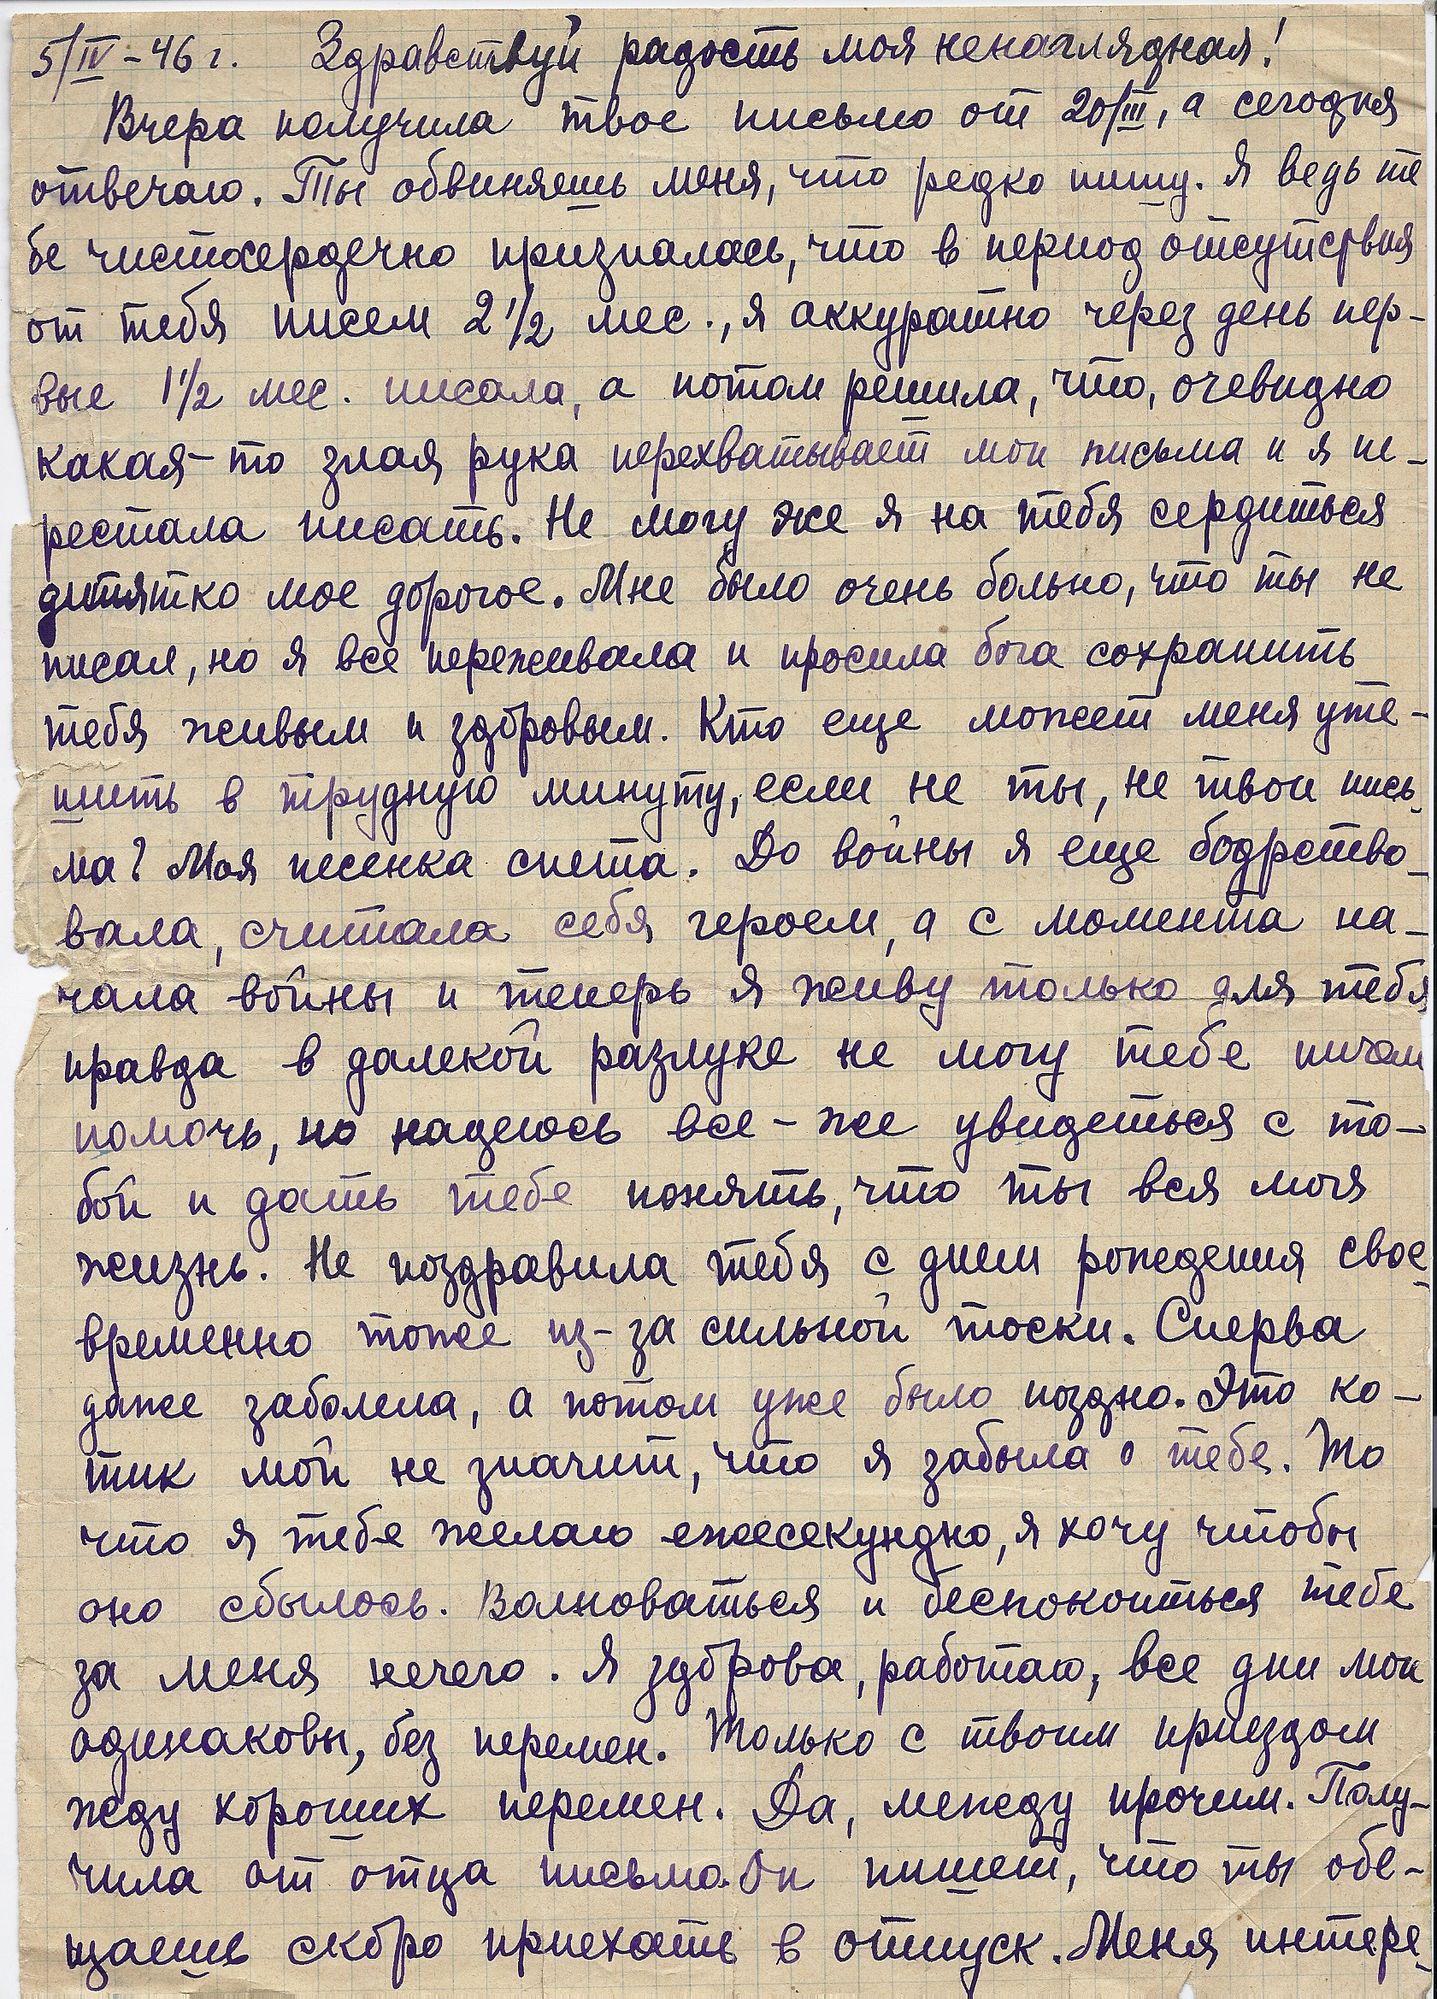 5/IV-46 г. Здравствуй радость моя ненаглядная!
Вчера получила твое письмо от 20/III, а сегодня
отвечаю. Ты обвиняешь меня, что редко пишу. Я ведь те
бе чистосердечно призналась, что в период отсутствия
от тебя писем 2 1/2 мес., я аккуратно через день пер-
вые 1 1/2 мес. писала, а потом решила, что, очевидно
какая-то злая рука перехватывает мои письма и я пе-
рестала писать. Не могу же я на тебя сердиться
дитятко мое дорогое. Мне было очень больно, что ты не
писал, но я все переживала и просила бога сохранить
тебя живым и здоровым. Кто еще может меня уте-
шить в трудную минуту, если не ты, не твои пись-
ма? Моя песенка спета. До войны я еще бодрство-
вала, считала себя героем, а с момента на-
чала войны и теперь я живу только для тебя
правда в далекой разлуке не могу тебе ничем
помочь, но надеюсь все-же увидеться с то-
бой и дать тебе понять, что ты вся моя
жизнь. Не поздравила тебя с днем рождения свое-
временно тоже из-за сильной тоски. Сперва
даже заболела, а потом уже было поздно. Это ко-
тик мой не значит, что я забыла о тебе. То
что я тебе желаю ежесекундно, я хочу чтобы
оно сбылось. Волноваться и беспокоиться тебе
за меня нечего. Я здорова, работаю, все дни мои
одинаковы, без перемен. Только с твоим приездом
жду хороших перемен. Да, между прочим. Полу-
чила от отца письмо. Он пишет, что ты обе-
щаешь скоро приехать в отпуск. Меня интере-